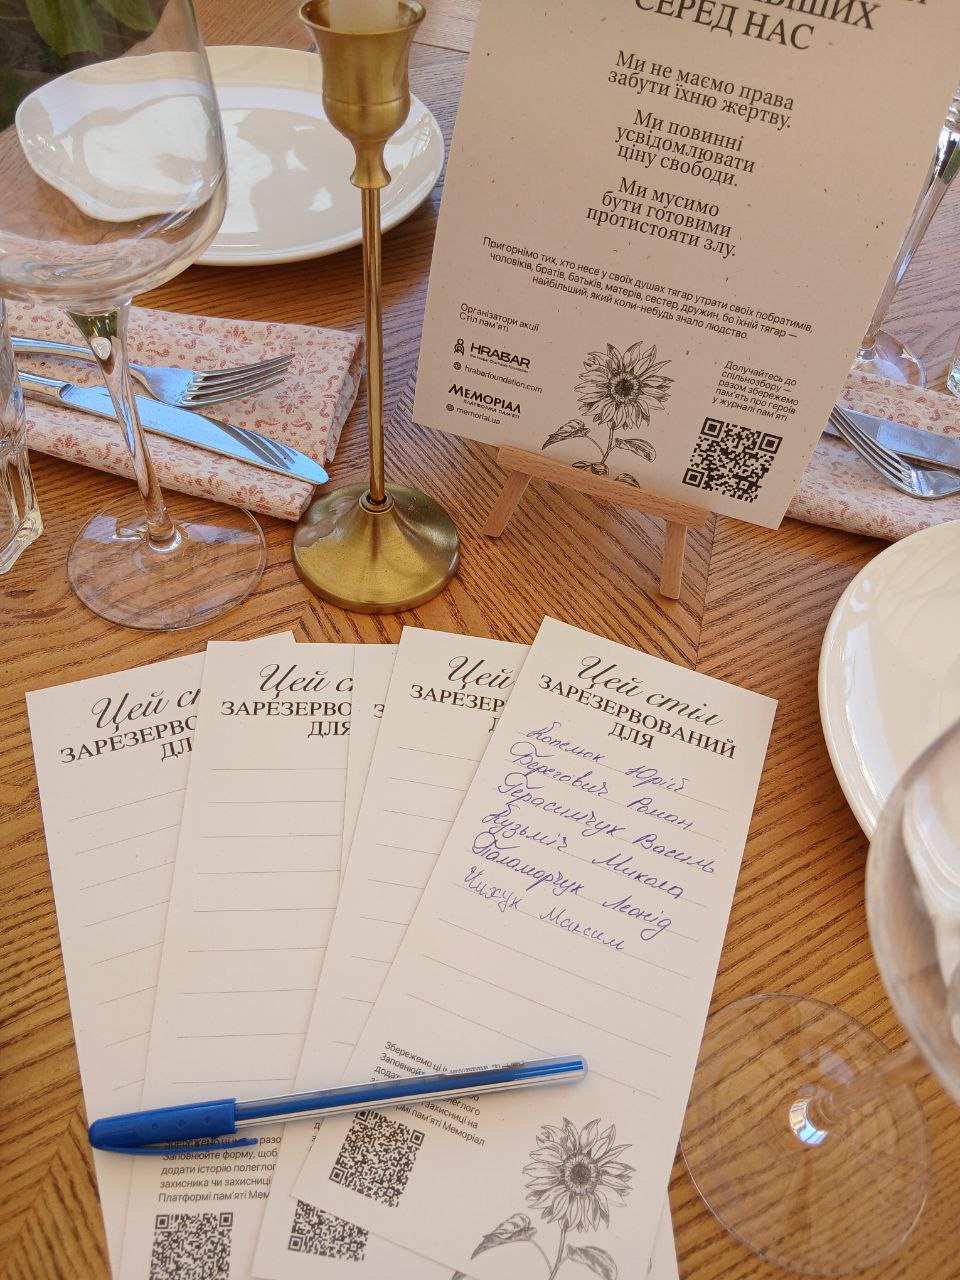 СЕРЕД НАС
Ми не маємо права
забути їхню жертву.
Ми повинні
усвідомлювати
ціну свободи.
Ми мусимо
бути готовими
протистояти злу.
Пригорнімо тих, хто несе у своїх душах тягар утрати своїх побратимів,
чоловіків, братів, батьків, матерів, сестер, дружин, бо їхній тягар —
найбільший, який коли-небудь знало людство.
Організатори акції
Стіл пам'яті
HRABAR
hrabarfoundation.com
МЕМОРІАЛ
ПЛАТФОРМА ПАМ'ЯТІ
memorial.ua
Долучайтесь до
спільнозбору —
разом збережемо
пам'ять про героїв
у журналі пам'яті
Цей
ЗАРЕЗЕРВО
ДЛ
Цей с
ЗАРЕЗЕРВО
ДЛЯ
З
Цей
ЗАРЕЗЕРВ
Д
Цей стіл
ЗАРЕЗЕРВОВАНИЙ
ДЛЯ
Копелюк Юрій
Берегович Роман
Герасимчук Василь
Кузьміч Микола
Паламарчук Леонід
Чихун Максим
Збережемо ці
Заповнюйте
додат
полеглого
захисниці на
рмі пам'яті Меморіал
Збережемо ці разо
Заповнюйте форму, щоб
додати історію полеглог
захисника чи захисниці
Платформі пам'яті Мем